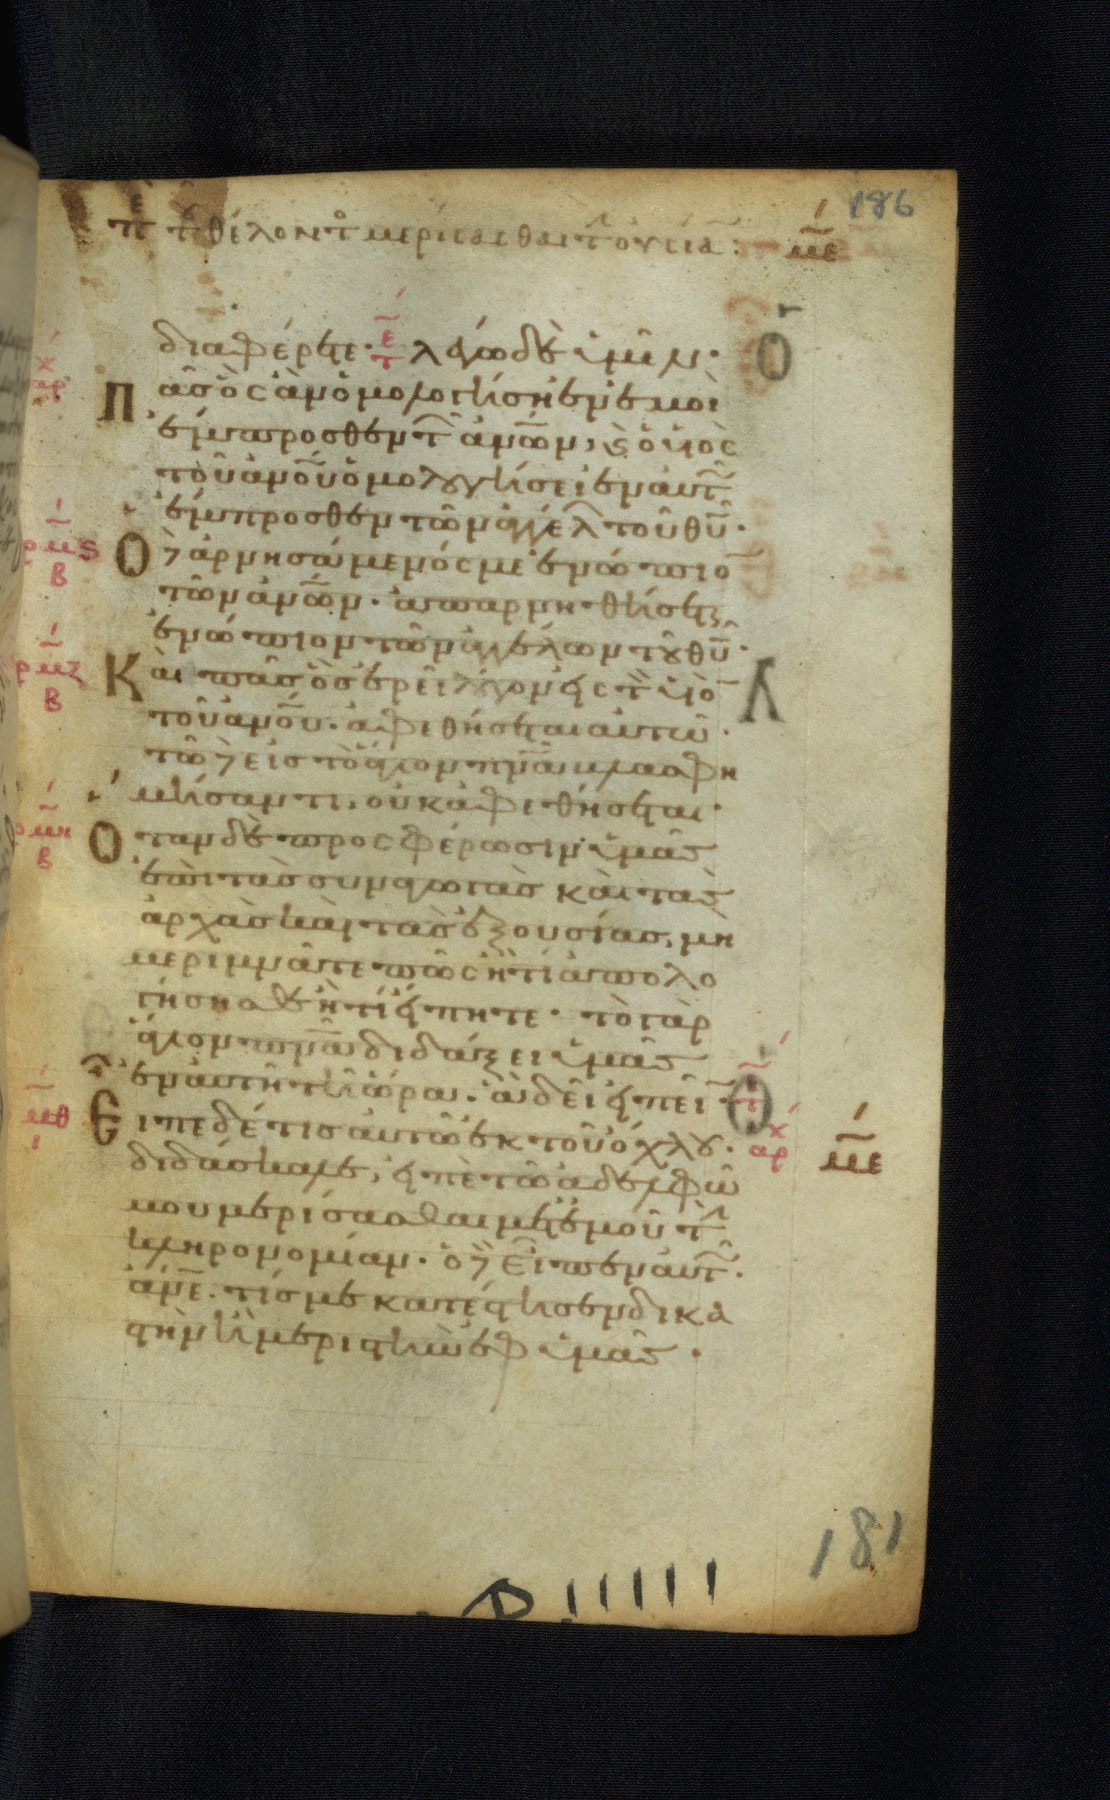 186
πε τ θέλοντ μερίσασθαι τ ουσίαν : με
διαφέρετε · λέγω δὲ ὑμῖν ·
Πᾶς ὃς ἂν ὁμολογήσῃ ἐν ἐμοὶ
ἔμπροσθεν τ ἀν̅ω̅ν, κ ὁ υἱὸς
τοῦ ἀν̅ο̅υ ὁμολογήσει ἐν αὐτ
ἔμπροσθεν τῶν ἀγγέλ τοῦ θ̅υ̅ ·
Ὁ δὲ ἀρνησάμενός με ἐνώπιο̅
τῶν ἀν̅ω̅ν · ἀπαρνηθήσεται
ἐνώπιον τῶν ἀγγέλων τοῦ θ̅υ̅ ·
Καὶ πᾶς ὃς ἐρεῖ λόγον εἰς τὸν υἱὸ̅
τοῦ ἀν̅ο̅υ · ἀφεθήσεται αὐτῶ ·
τῶ δὲ εἰς τὸ ἅγιον π̅ν̅α̅ βλασφη
μήσαντι, οὐκ ἀφεθήσεται ·
Ὅταν δὲ προσφέρωσιν ὑμᾶς
ἐπὶ τὰς συναγωγὰς καὶ τὰς
ἀρχὰς καὶ τὰς ἐξουσίας, μὴ
μεριμνᾶτε πῶς ἢ τί ἀπολο
γήσησθε ἢ τί εἴπητε · τὸ γὰρ
ἅγιον π̅ν̅α̅ διδάξει ὑμᾶς
ἐν αὐτῇ τῇ ὥρα · ἃ δεῖ εἰπεῖ̅
Εἶπε δέ τις αὐτῶ ἐκ τοῦ ὄχλου ·
διδάσκαλε, εἰπὲ τῶ ἀδελφῶ
μου μερίσασθαι μετ' ἐμοῦ τὴν
κληρονομίαν · ὁ δὲ εἶπεν αὐτ ·
ἄν̅ε̅ · τίς με κατέστησεν δικα
στὴν ἢ μεριστὴν ἐφ ὑμᾶς ·
με
181